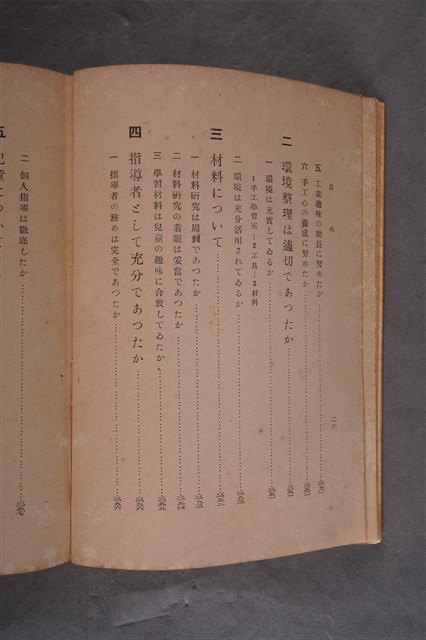 目次
二六
五 工業趣味の助長に努めたか
六 手工心の養成に努めたか
二 環境整理は適切であつたか
一 環境は充實してゐるか
1手工學習室―2工具―3材料
二 環境は充分活用されてゐるか
三 材料について
一 材料研究は周到であつたか
二 材料研究の着眼は妥當であつたか
三 學習材料は兒童の趣味に合致してゐたか
四 指導者として充分であつたか
一 指導者の務めは完全であつたか
二 個人指導は徹底したか
五